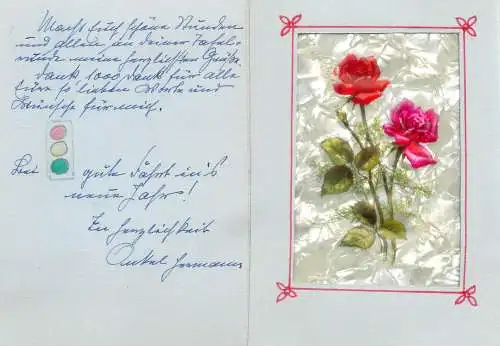 Macht Euch schöne Stunden
und allen an deiner Tafel-
runde meine herzlichsten Grüße.
Dank 1000 Dank für alle
Eure so lieben Worte und
Wünsche für mich.
Frei gute Fahrt in's
neue Jahr!
In Herzlichkeit
Onkel Hermann